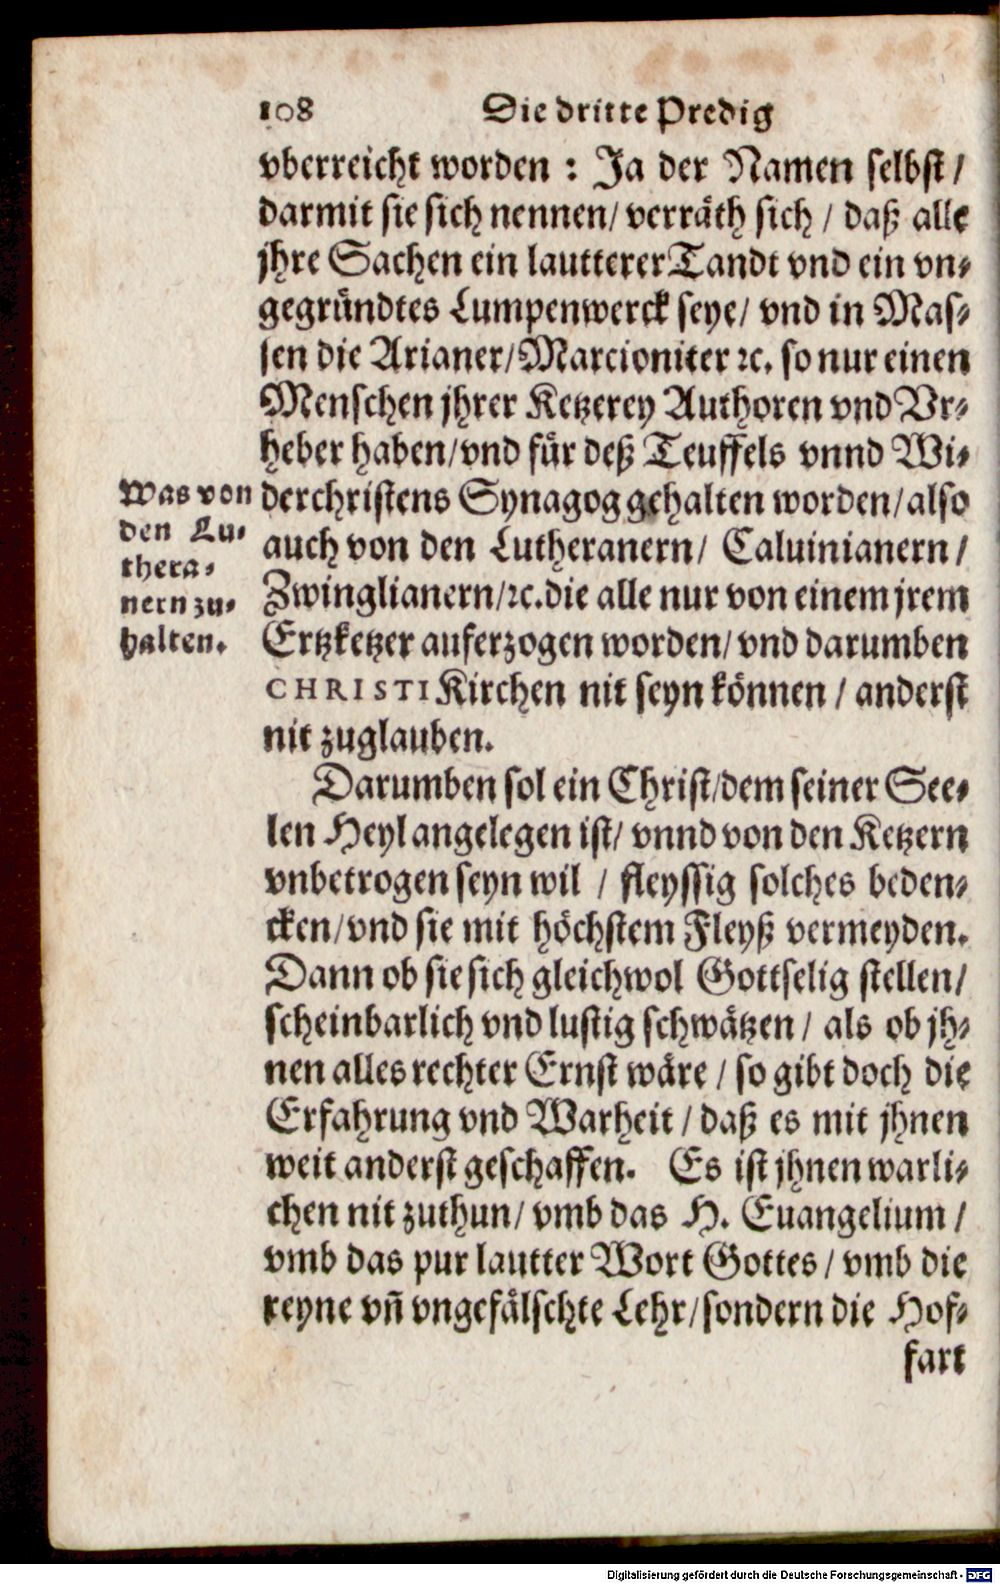 108 Die dritte Predig
vberreicht worden : Ja der Namen selbst /
darmit sie sich nennen/ verräth sich / daß alle
jhre Sachen ein lautterer Tandt vnd ein vn-
gegründtes Lumpenwerck seye/ vnd in Mas-
sen die Arianer/ Marcioniter ꝛc. so nur einen
Menschen jhrer Ketzerey Authoren vnd Vr-
heber haben/ vnd für deß Teuffels vnnd Wi-
derchristens Synagog gehalten worden/ also
auch von den Lutheranern/ Caluinianern /
Zwinglianern/ ꝛc. die alle nur von einem jrem
Ertzketzer auferzogen worden/ vnd darumben
CHRISTI Kirchen nit seyn können / anderst
nit zuglauben.
Was von
den Lu-
thera-
nern zu-
halten.
Darumben sol ein Christ/ dem seiner See-
len Heyl angelegen ist/ vnnd von den Ketzern
vnbetrogen seyn wil / fleyssig solches beden-
cken/ vnd sie mit höchstem Fleyß vermeyden.
Dann ob sie sich gleichwol Gottselig stellen/
scheinbarlich vnd lustig schwätzen / als ob jh-
nen alles rechter Ernst wäre / so gibt doch die
Erfahrung vnd Warheit / daß es mit jhnen
weit anderst geschaffen. Es ist jhnen warli-
chen nit zuthun/ vmb das H. Euangelium /
vmb das pur lautter Wort Gottes / vmb die
reyne vñ vngefälschte Lehr/ sondern die Hof-
fart
Digitalisierung gefördert durch die Deutsche Forschungsgemeinschaft - DFG